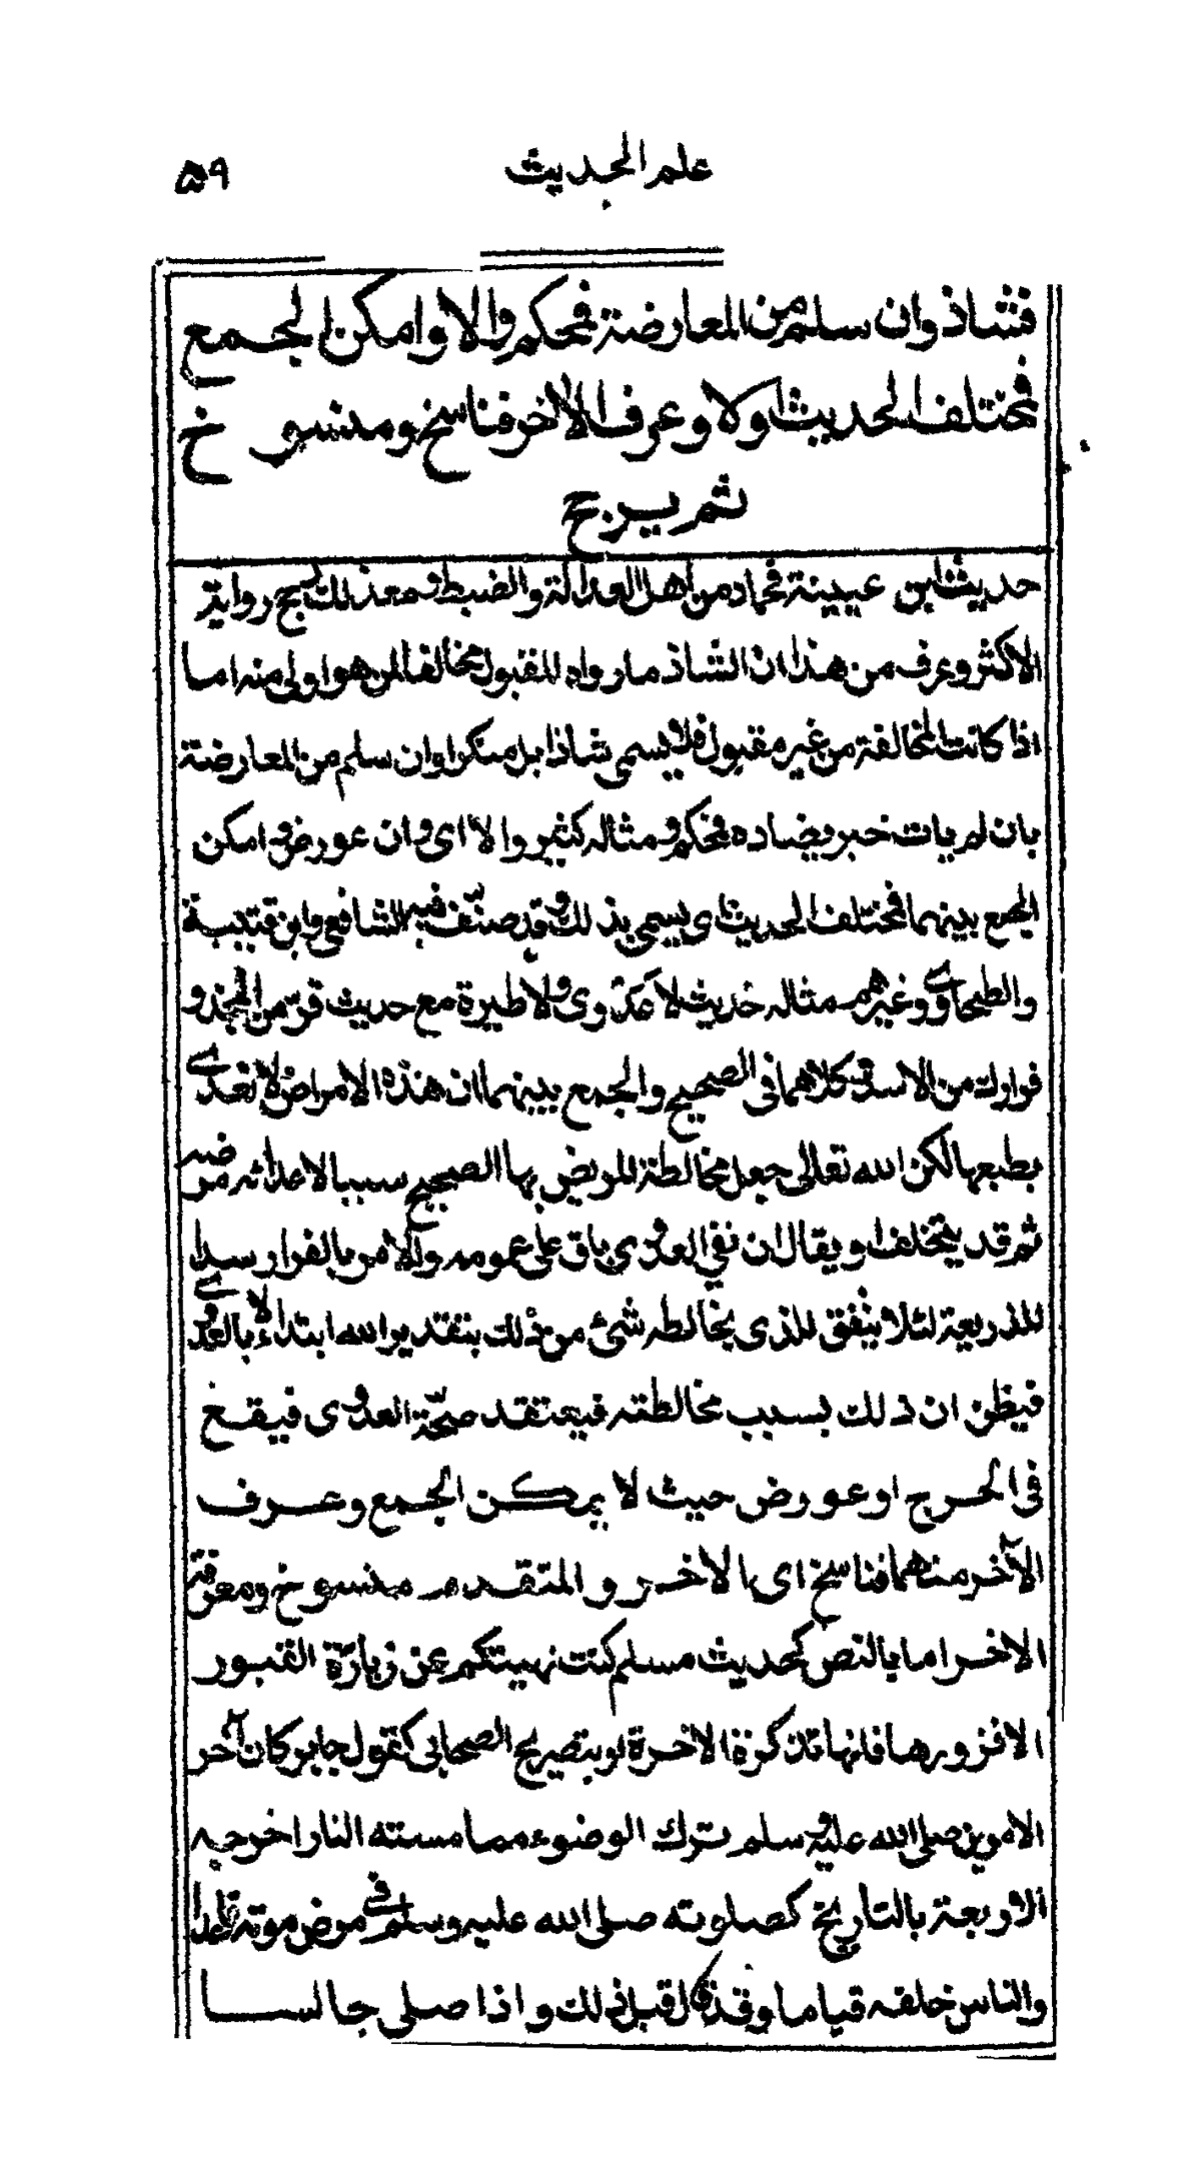 علم الحديث
۵۹
فشاذ وان سلم من المعارضة فمحكم والا وامكن الجمع
فمختلف الحديث اولا وعرف الآخر فناسخ ومنسوخ
ثم يرجح
حديث ابن عيينة فحماد من اهل العدالة والضبط ومع ذلك رجح رواية
الاكثر وعرف من هذا ان الشاذ ما رواه المقبول مخالفا لمن هو اولى منه اما
اذا كانت المخالفة من غير مقبول فلا يسمى شاذا بل منكرا وان سلم من المعارضة
بان لم يات خبر يضاده فمحكم ومثاله كثير والا اى وان عورض وامكن
الجمع بينهما فمختلف الحديث اى يسمى بذلك وقد صنّف فيه الشافعى وابن قتيبة
والطحاوى وغيرهم مثاله حديث لا عدوى ولا طيرة مع حديث فرّ من المجذوم
فرارك من الاسد كلاهما فى الصحيح والجمع بينهما ان هذه الامراض لا تعدى
بطبعها لكن الله تعالى جعل مخالطة المريض بها الصحيح سببا لاعدائه مرضه
ثم قد يتخلف او يقال ان نفى العدوى باق على عمومه والامر بالفرار سدا
للذريعة لئلا يتفق للذى يخالطه شئ من ذلك بتقدير الله ابتداء لا بالعدوى
فيظن ان ذلك بسبب مخالطته فيعتقد صحّة العدوى فيقع
فى الحرج او عورض حيث لا يمكن الجمع وعرف
الآخر منهما فناسخ اى الاخر والمتقدم منسوخ ومعرفة
الاخر اما بالنص كحديث مسلم كنت نهيتكم عن زيارة القبور
الا فزوروها فانها تذكرة الاخرة او بتصريح الصحابى كقول جابر كان آخر
الامرين صلى الله عليه وسلم ترك الوضوء مما مسته النار اخرجه
الاربعة بالتاريخ كصلوته صلى الله عليه وسلم فى مرض موته قاعدا
والناس خلفه قياما وقد قال قبل ذلك واذا صلى جالسا